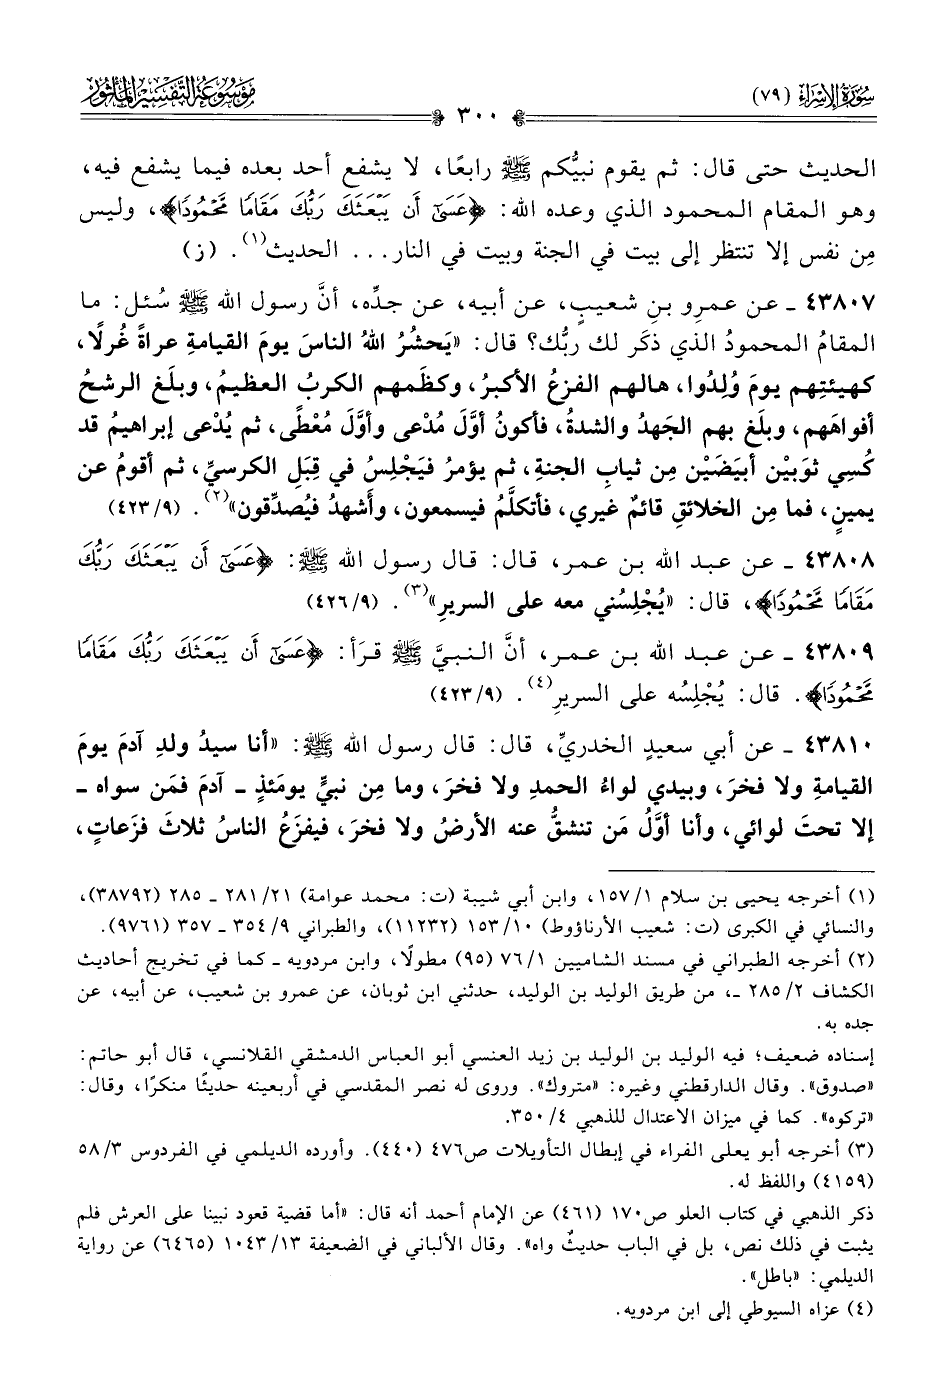 سُورَةُ الإِسْرَاءِ (٧٩)
٣٠٠
مَوْسُوعَةُ التَّفْسِيرِ المَأْثُور
الحديث حتى قال: ثم يقوم نبيُّكم ﷺ رابعًا، لا يشفع أحد بعده فيما يشفع فيه،
وهو المقام المحمود الذي وعده الله: ﴿عَسَىٰٓ أَن يَبْعَثَكَ رَبُّكَ مَقَامًا مَّحْمُودًا﴾، وليس
مِن نفس إلا تنتظر إلى بيت في الجنة وبيت في النار... الحديث(١). (ز)
٤٣٨٠٧ ـ عن عمرِو بنِ شعيبٍ، عن أبيه، عن جدِّه، أنَّ رسول الله ﷺ سُئل: ما
المقامُ المحمودُ الذي ذكَر لك ربُّك؟ قال: «يَحشُرُ اللهُ الناسَ يومَ القيامةِ عراةً غُرلًا،
كهيئتِهم يومَ وُلِدُوا، هالهم الفزعُ الأكبرُ، وكظَمهم الكربُ العظيمُ، وبلَغ الرشحُ
أفواهَهم، وبلَغ بهم الجَهدُ والشدةُ، فأكونُ أوَّلَ مُدْعى وأوَّلَ مُعْطًى، ثم يُدْعى إبراهيمُ قد
كُسِي ثوبَيْن أبيَضَيْن مِن ثيابِ الجنةِ، ثم يؤمرُ فيَجْلِسُ في قِبَلِ الكرسيِّ، ثم أقومُ عن
يمينِ، فما مِن الخلائقِ قائمٌ غيري، فأتكلَّمُ فيسمعون، وأَشهدُ فيُصدِّقون»(٢). (٤٢٣/٩)
٤٣٨٠٨ ـ عن عبد الله بن عمر، قال: قال رسول الله ﷺ: ﴿عَسَىٰٓ أَن يَبْعَثَكَ رَبُّكَ
مَقَامًا مَّحْمُودًا﴾، قال: «يُجْلِسُني معه على السريرِ»(٣). (٤٢٦/٩)
٤٣٨٠٩ ـ عن عبد الله بن عمر، أنَّ النبيَّ ﷺ قرَأ: ﴿عَسَىٰٓ أَن يَبْعَثَكَ رَبُّكَ مَقَامًا
مَّحْمُودًا﴾. قال: يُجْلِسُه على السريرِ(٤). (٤٢٣/٩)
٤٣٨١٠ ـ عن أبي سعيدٍ الخدريِّ، قال: قال رسول الله ﷺ: «أنا سيدُ ولدِ آدمَ يومَ
القيامةِ ولا فخرَ، وبيدي لواءُ الحمدِ ولا فخرَ، وما مِن نبيٍّ يومَئذٍ ـ آدمَ فمَن سواه ـ
إلا تحتَ لوائي، وأنا أوَّلُ مَن تنشقُّ عنه الأرضُ ولا فخرَ، فيفزَعُ الناسُ ثلاثَ فزَعاتٍ،
(١) أخرجه يحيى بن سلام ١٥٧/١، وابن أبي شيبة (ت: محمد عوامة) ٢٨١/٢١ ـ ٢٨٥ (٣٨٧٩٢)،
والنسائي في الكبرى (ت: شعيب الأرناؤوط) ١٥٣/١٠ (١١٢٣٢)، والطبراني ٣٥٤/٩ ـ ٣٥٧ (٩٧٦١).
(٢) أخرجه الطبراني في مسند الشاميين ٧٦/١ (٩٥) مطولًا، وابن مردويه ـ كما في تخريج أحاديث
الكشاف ٢٨٥/٢ ـ، من طريق الوليد بن الوليد، حدثني ابن ثوبان، عن عمرو بن شعيب، عن أبيه، عن
جده به.
إسناده ضعيف؛ فيه الوليد بن الوليد بن زيد العنسي أبو العباس الدمشقي القلانسي، قال أبو حاتم:
«صدوق». وقال الدارقطني وغيره: «متروك». وروى له نصر المقدسي في أربعينه حديثًا منكرًا، وقال:
«تركوه». كما في ميزان الاعتدال للذهبي ٣٥٠/٤.
(٣) أخرجه أبو يعلى الفراء في إبطال التأويلات ص٤٧٦ (٤٤٠). وأورده الديلمي في الفردوس ٥٨/٣
(٤١٥٩) واللفظ له.
ذكر الذهبي في كتاب العلو ص١٧٠ (٤٦١) عن الإمام أحمد أنه قال: «أما قضية قعود نبينا على العرش فلم
يثبت في ذلك نص، بل في الباب حديثٌ واه». وقال الألباني في الضعيفة ١٠٤٣/١٣ (٦٤٦٥) عن رواية
الديلمي: «باطل».
(٤) عزاه السيوطي إلى ابن مردويه.